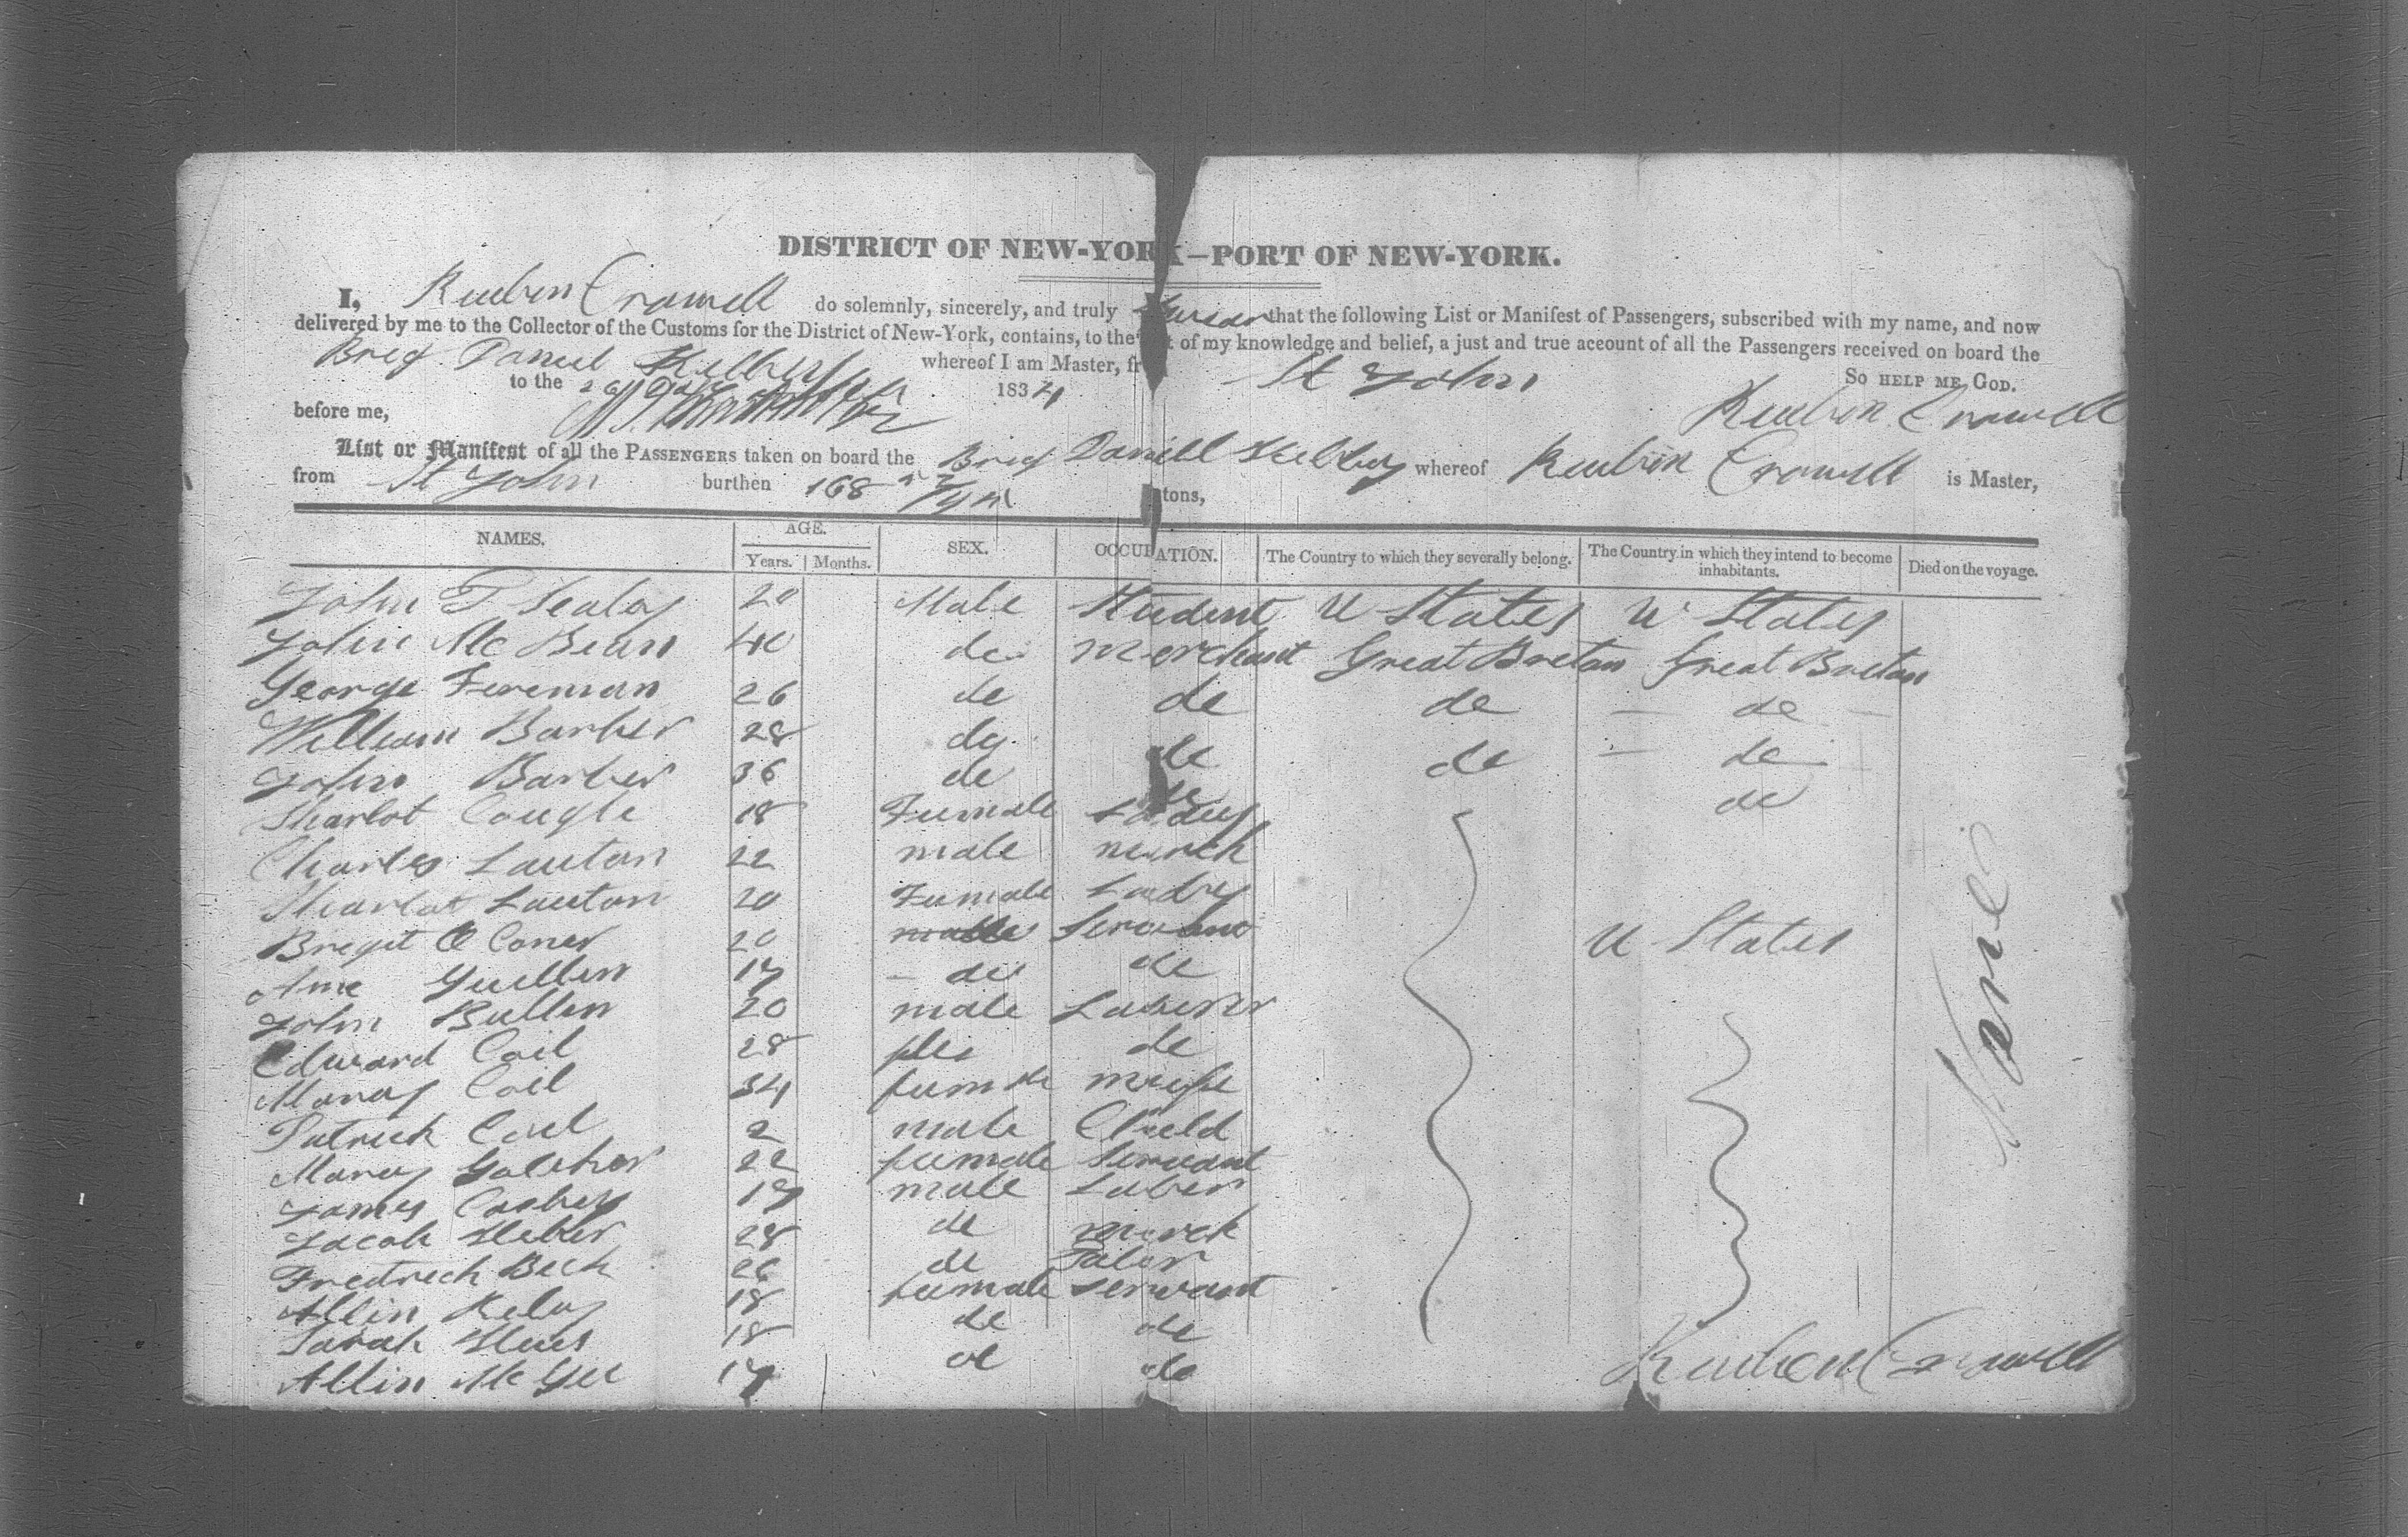 DISTRICT OF NEW-YORK—PORT OF NEW-YORK.
I, Reuben Crowell do solemnly, sincerely, and truly swear that the following List or Manifest of Passengers, subscribed with my name, and now
delivered by me to the Collector of the Customs for the District of New-York, contains, to the best of my knowledge and belief, a just and true account of all the Passengers received on board the
Breg Daniel whereof I am Master, from St John
to the 26 1834 So HELP ME GOD.
before me, Reuben Crowell
List or Manifest of all the PASSENGERS taken on board the Breg Daniell whereof Reuben Crowell is Master,
from St John burthen 168 tons,
NAMES. AGE. Years. Months. SEX. OCCUPATION. The Country to which they severally belong. The Country in which they intend to become inhabitants. Died on the voyage.
John T Sealy 20 Male Student U States U States
John Mc Bean 40 do Merchant Great Bretan Great Bretan
George Fereman 26 de de de de
William Barber 28 do de de de
John Barber 36 de de de
Sharlot Cougle 18 Fumale Ladey
Charles Lauton 22 male merch
Sharlot Lauton 20 Fumale Lady
Bregit O Coner 20 U States
Ann 17 do de
John Bullen 20 male Laberer
Edward Coil 28 de
Marey Coil 34 fumale
Patrick Coil 2 male Cheld
Marey 22 fumale Servant
James Cosbey 19 male Laber
Jacob 28 de merch
Fredrech Beck 26 de Talor
Allin Keley 18 fumale servant
Sarah 18 de de
Allin Mc Gee 17 de do
None
Reuben Crowell